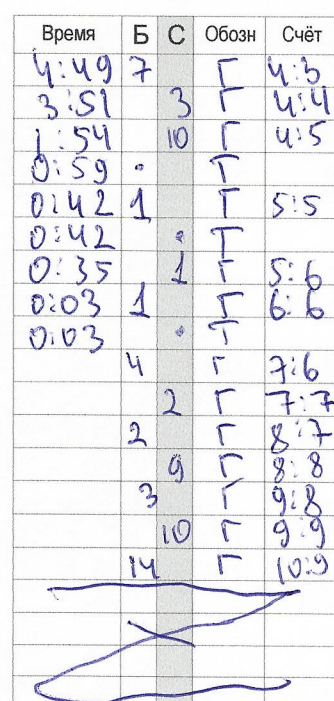 Время Б С Обозн Счёт
4:49 7 Г 4:3
3:51 3 Г 4:4
1:54 10 Г 4:5
0:59 • Т
0:42 1 Г 5:5
0:42 • Т
0:35 1 Г 5:6
0:03 1 Г 6:6
0:03 • Т
4 Г 7:6
2 Г 7:7
2 Г 8:7
9 Г 8:8
3 Г 9:8
10 Г 9:9
14 Г 10:9